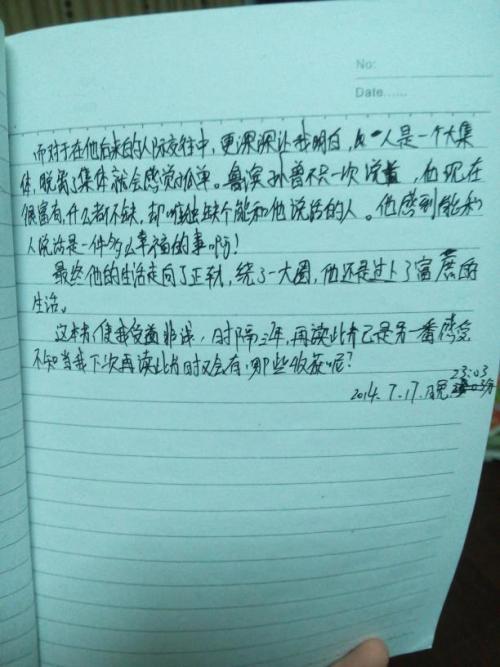 No:
Date......
而对于在他后来的人际交往中，更深深让我明白，人是一个大集
体，脱离了集体就会感觉孤单。鲁滨孙曾不只一次说道，他现在
很富有什么都不缺，却唯独缺个能和他说话的人。他感到能和
人说话是一件多么幸福的事啊！
最终他的生活走向了正轨，绕了一大圈，他还是过上了富裕的
生活。
这本书使我受益非浅，时隔三年，再读此书已是另一番感受
不知当我下次再读此书时又会有哪些收获呢？
23:03
2014.7.17.晚